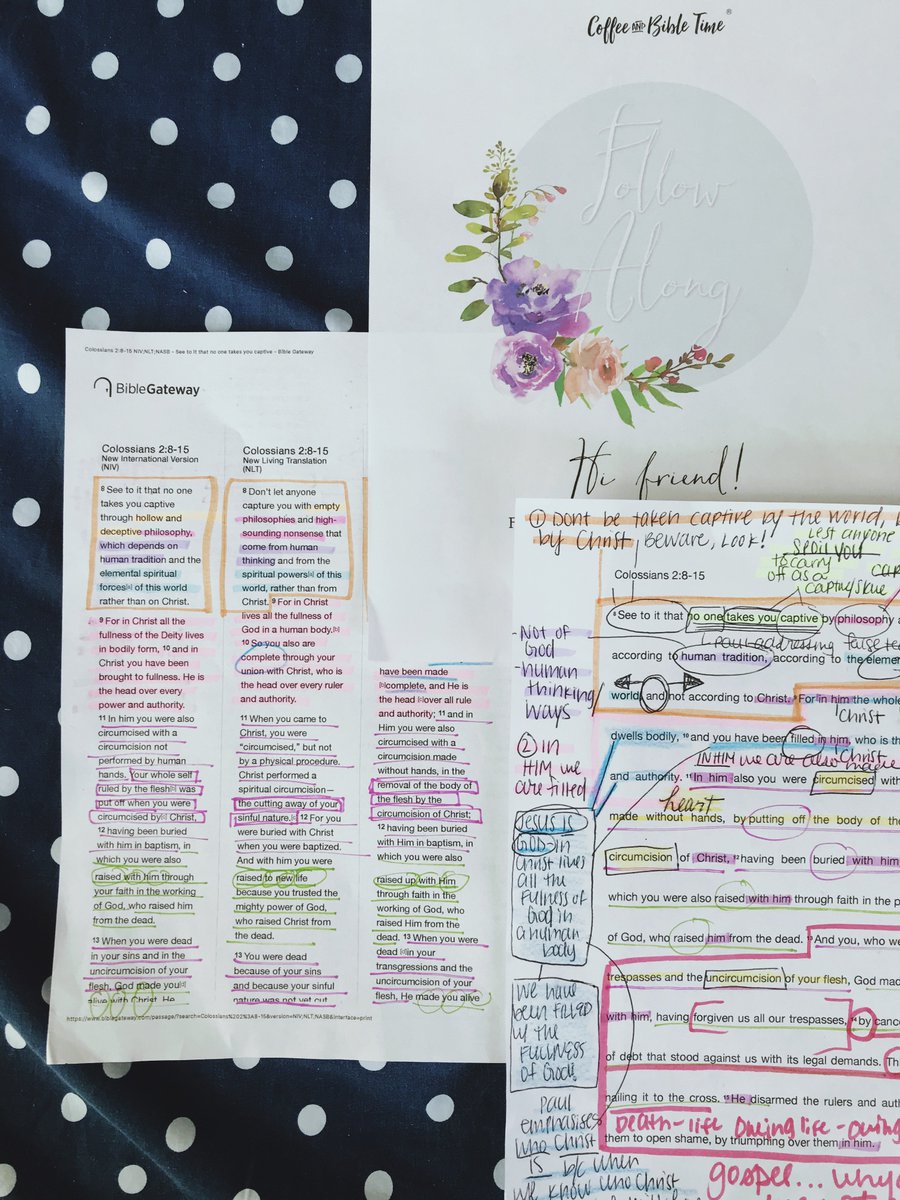 Coffee AND Bible Time®
Follow
Along
Hi friend!
Colossians 2:8-15 NIV;NLT;NASB - See to it that no one takes you captive - Bible Gateway
BibleGateway
Colossians 2:8-15
New International Version
(NIV)
8 See to it that no one
takes you captive
through hollow and
deceptive philosophy,
which depends on
human tradition and the
elemental spiritual
forces[a] of this world
rather than on Christ.
9 For in Christ all the
fullness of the Deity lives
in bodily form, 10 and in
Christ you have been
brought to fullness. He is
the head over every
power and authority.
11 In him you were also
circumcised with a
circumcision not
performed by human
hands. Your whole self
ruled by the flesh[b] was
put off when you were
circumcised by[c] Christ,
12 having been buried
with him in baptism, in
which you were also
raised with him through
your faith in the working
of God, who raised him
from the dead.
13 When you were dead
in your sins and in the
uncircumcision of your
flesh, God made you[d]
alive with Christ. He
Colossians 2:8-15
New Living Translation
(NLT)
8 Don't let anyone
capture you with empty
philosophies and high-
sounding nonsense that
come from human
thinking and from the
spiritual powers[a] of this
world, rather than from
Christ. 9 For in Christ
lives all the fullness of
God in a human body.[b]
10 So you also are
complete through your
union with Christ, who is
the head over every ruler
and authority.
11 When you came to
Christ, you were
"circumcised," but not
by a physical procedure.
Christ performed a
spiritual circumcision—
the cutting away of your
sinful nature.[c] 12 For you
were buried with Christ
when you were baptized.
And with him you were
raised to new life
because you trusted the
mighty power of God,
who raised Christ from
the dead.
13 You were dead
because of your sins
and because your sinful
nature was not yet cut
have been made
complete, and He is
the head over all rule
and authority; 11 and in
Him you were also
circumcised with a
circumcision made
without hands, in the
removal of the body of
the flesh by the
circumcision of Christ;
12 having been buried
with Him in baptism, in
which you were also
raised up with Him
through faith in the
working of God, who
raised Him from the
dead. 13 When you were
dead in your
transgressions and the
uncircumcision of your
flesh, He made you alive
https://www.biblegateway.com/passage/?search=Colossians%202%3A8-15&version=NIV;NLT;NASB&interface=print
① Dont be taken captive by the world,
by Christ, Beware, Look!
Lest anyone
spoil you
to carry
off as a
captive/slave
Colossians 2:8-15
8 See to it that no one takes you captive by philosophy
Paul addressing false
according to human tradition, according to the
world, and not according to Christ. 9 For in him the whole
Christ
dwells bodily, 10 and you have been filled in him, who is
IN HIM we are also made
and authority. 11 In him also you were circumcised with
heart
made without hands, by putting off the body of the
circumcision of Christ, 12 having been buried with him
which you were also raised with him through faith in the
of God, who raised him from the dead. 13 And you, who
trespasses and the uncircumcision of your flesh, God
with him, having forgiven us all our trespasses, 14 by
of debt that stood against us with its legal demands.
nailing it to the cross. 15 He disarmed the rulers and
Death-life Owing life-owing
them to open shame, by triumphing over them in him.
gospel...
-Not of
God
-human
thinking
ways
② In
HIM we
are filled
Jesus is
GOD-in
Christ lives
all the
fullness of
God in
a human
body
We have
been filled
w the
FULLNESS
of God!
Paul
emphasises
who Christ
IS b/c when
we know who Christ